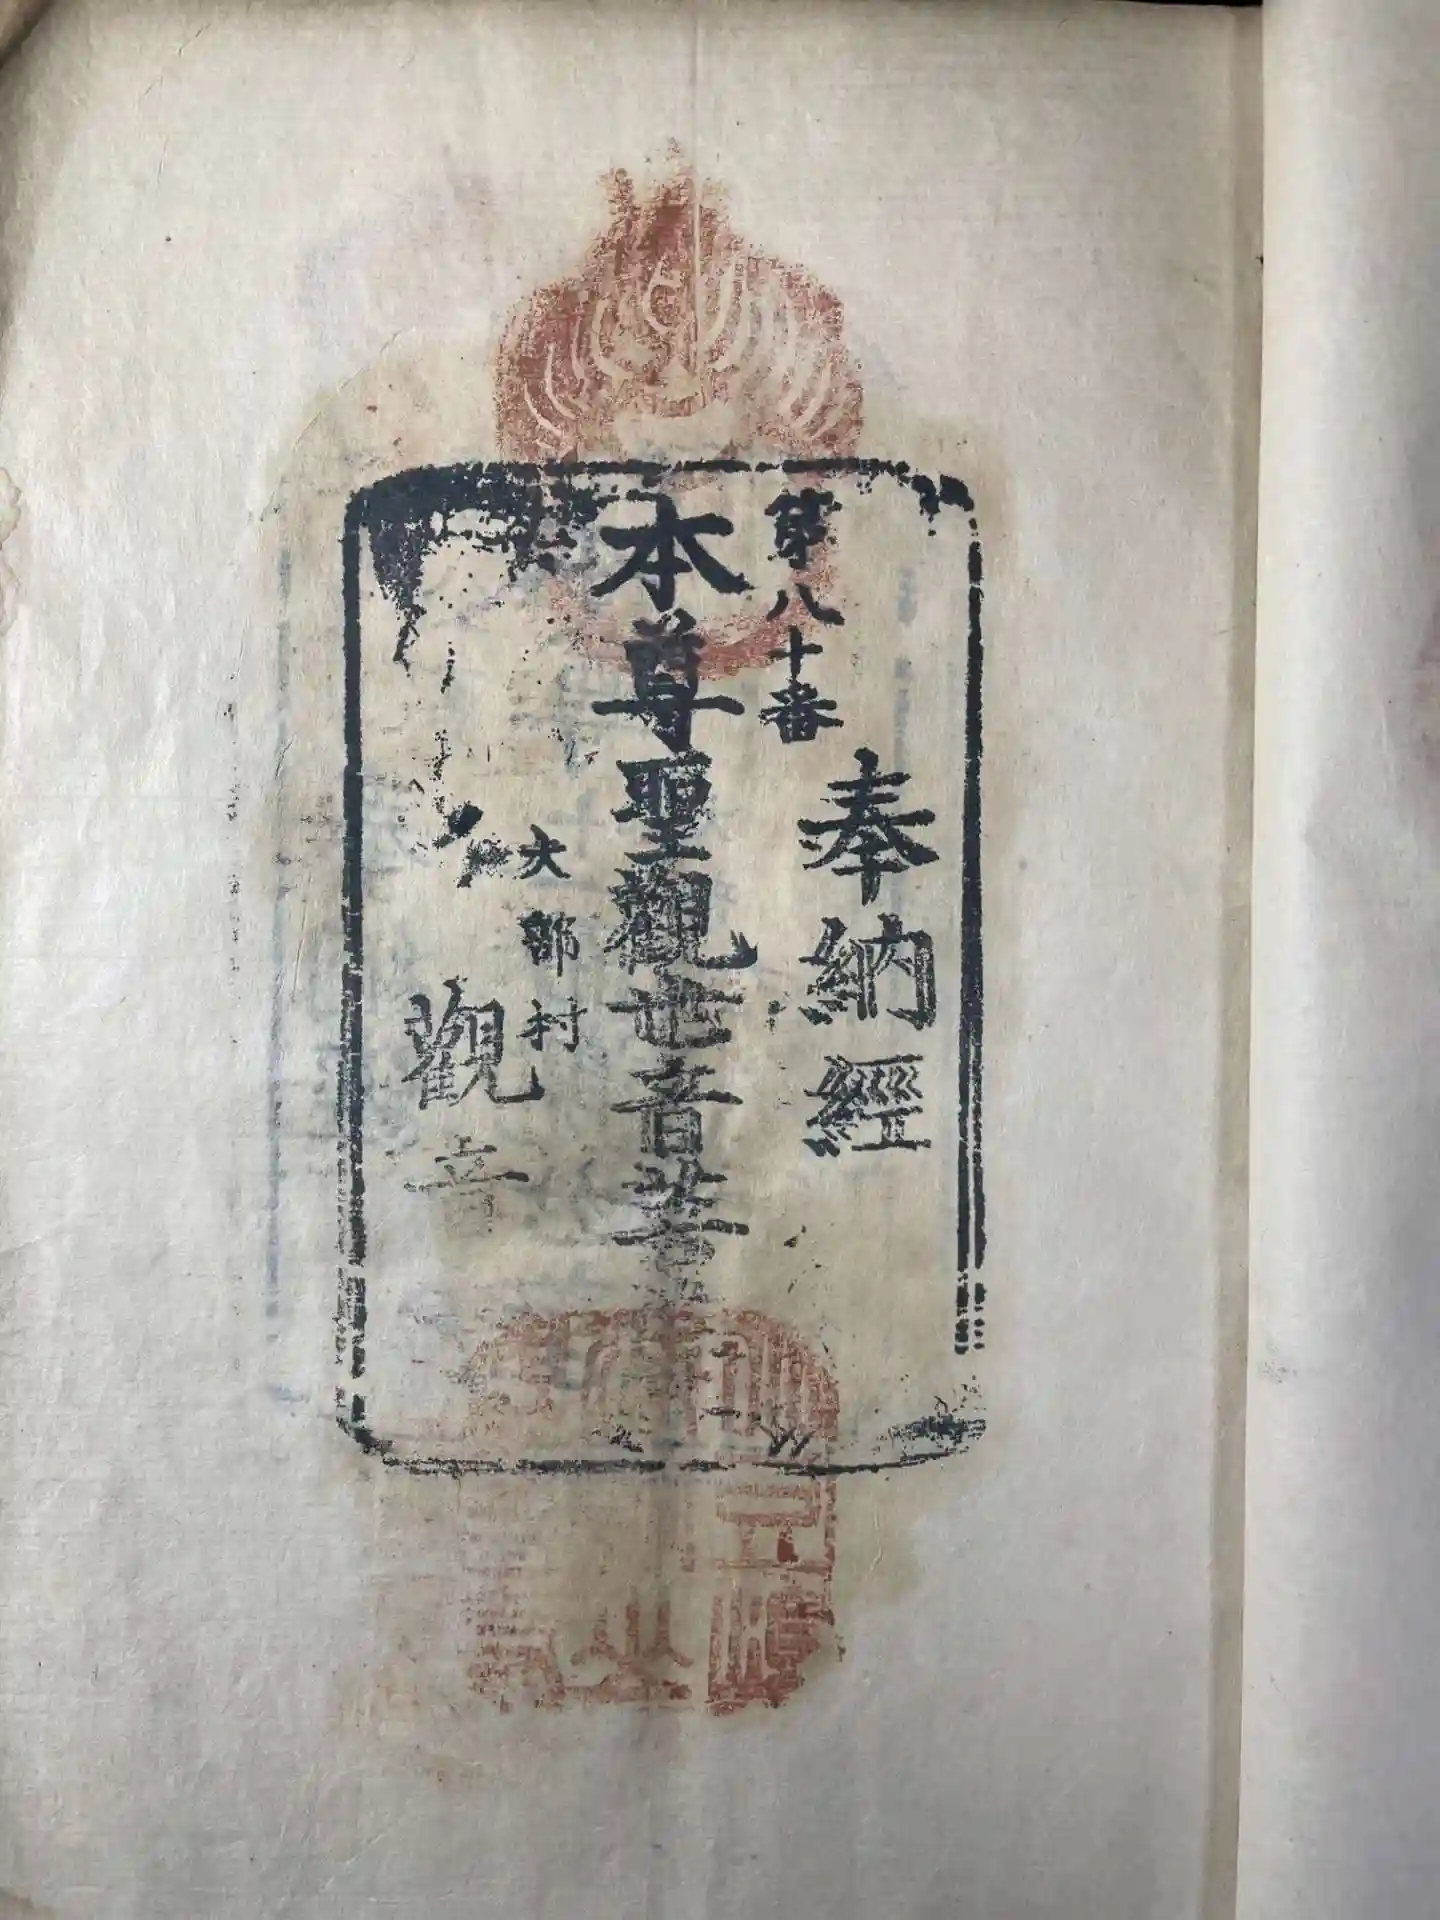 奉納經
第八十番
本尊聖觀世音菩
大部村
觀音